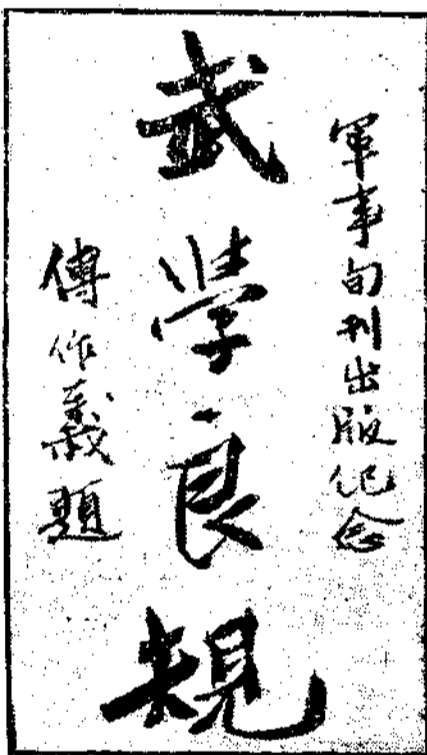 軍事旬刊出版纪念
武學良規
傅作義題